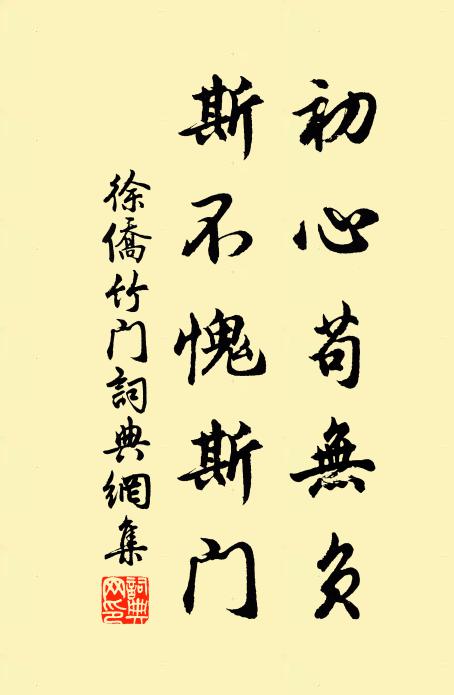 初心苟無负
斯不愧斯门
徐僑竹门詞典網集
詞典网印